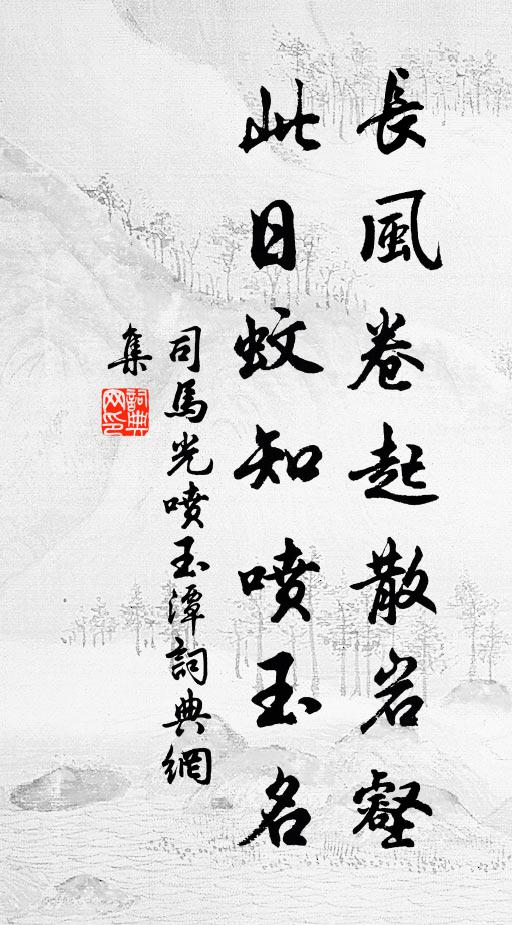 長風卷起散岩壑
此日蚊知噴玉名
司馬光噴玉潭詞典網
集
詞典
网印